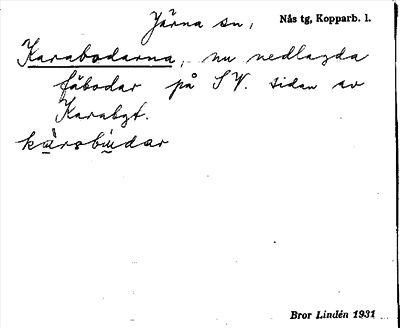 Järna sn, Nås tg, Kopparb. l.
Karabodarna, nu nedlagda
fäbodar på SV. sidan av
Karabgt.
kärsbudar
Bror Lindén 1931